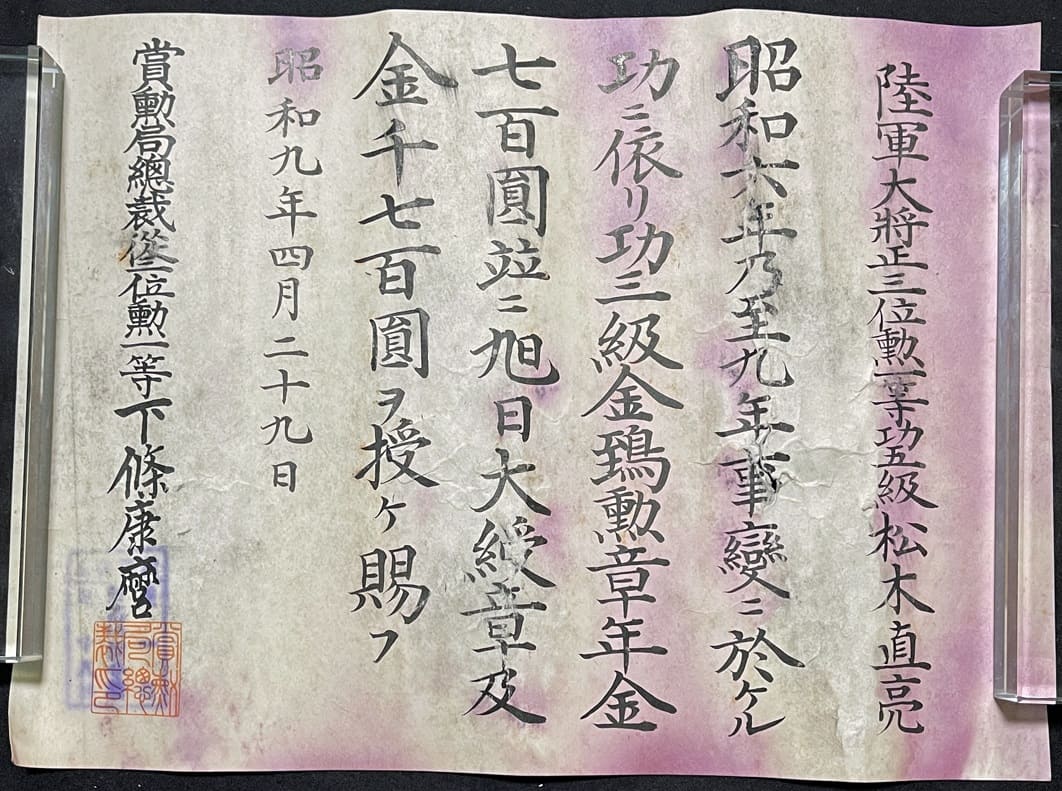 陸軍大將正三位勲一等功五級松木直亮
昭和六年乃至九年事變ニ於ケル
功ニ依リ功三級金鵄勲章年金
七百圓竝ニ旭日大綬章及
金千七百圓ヲ授ケ賜フ
昭和九年四月二十九日
賞勲局總裁從二位勲一等下條康麿
賞勲
局總
裁印